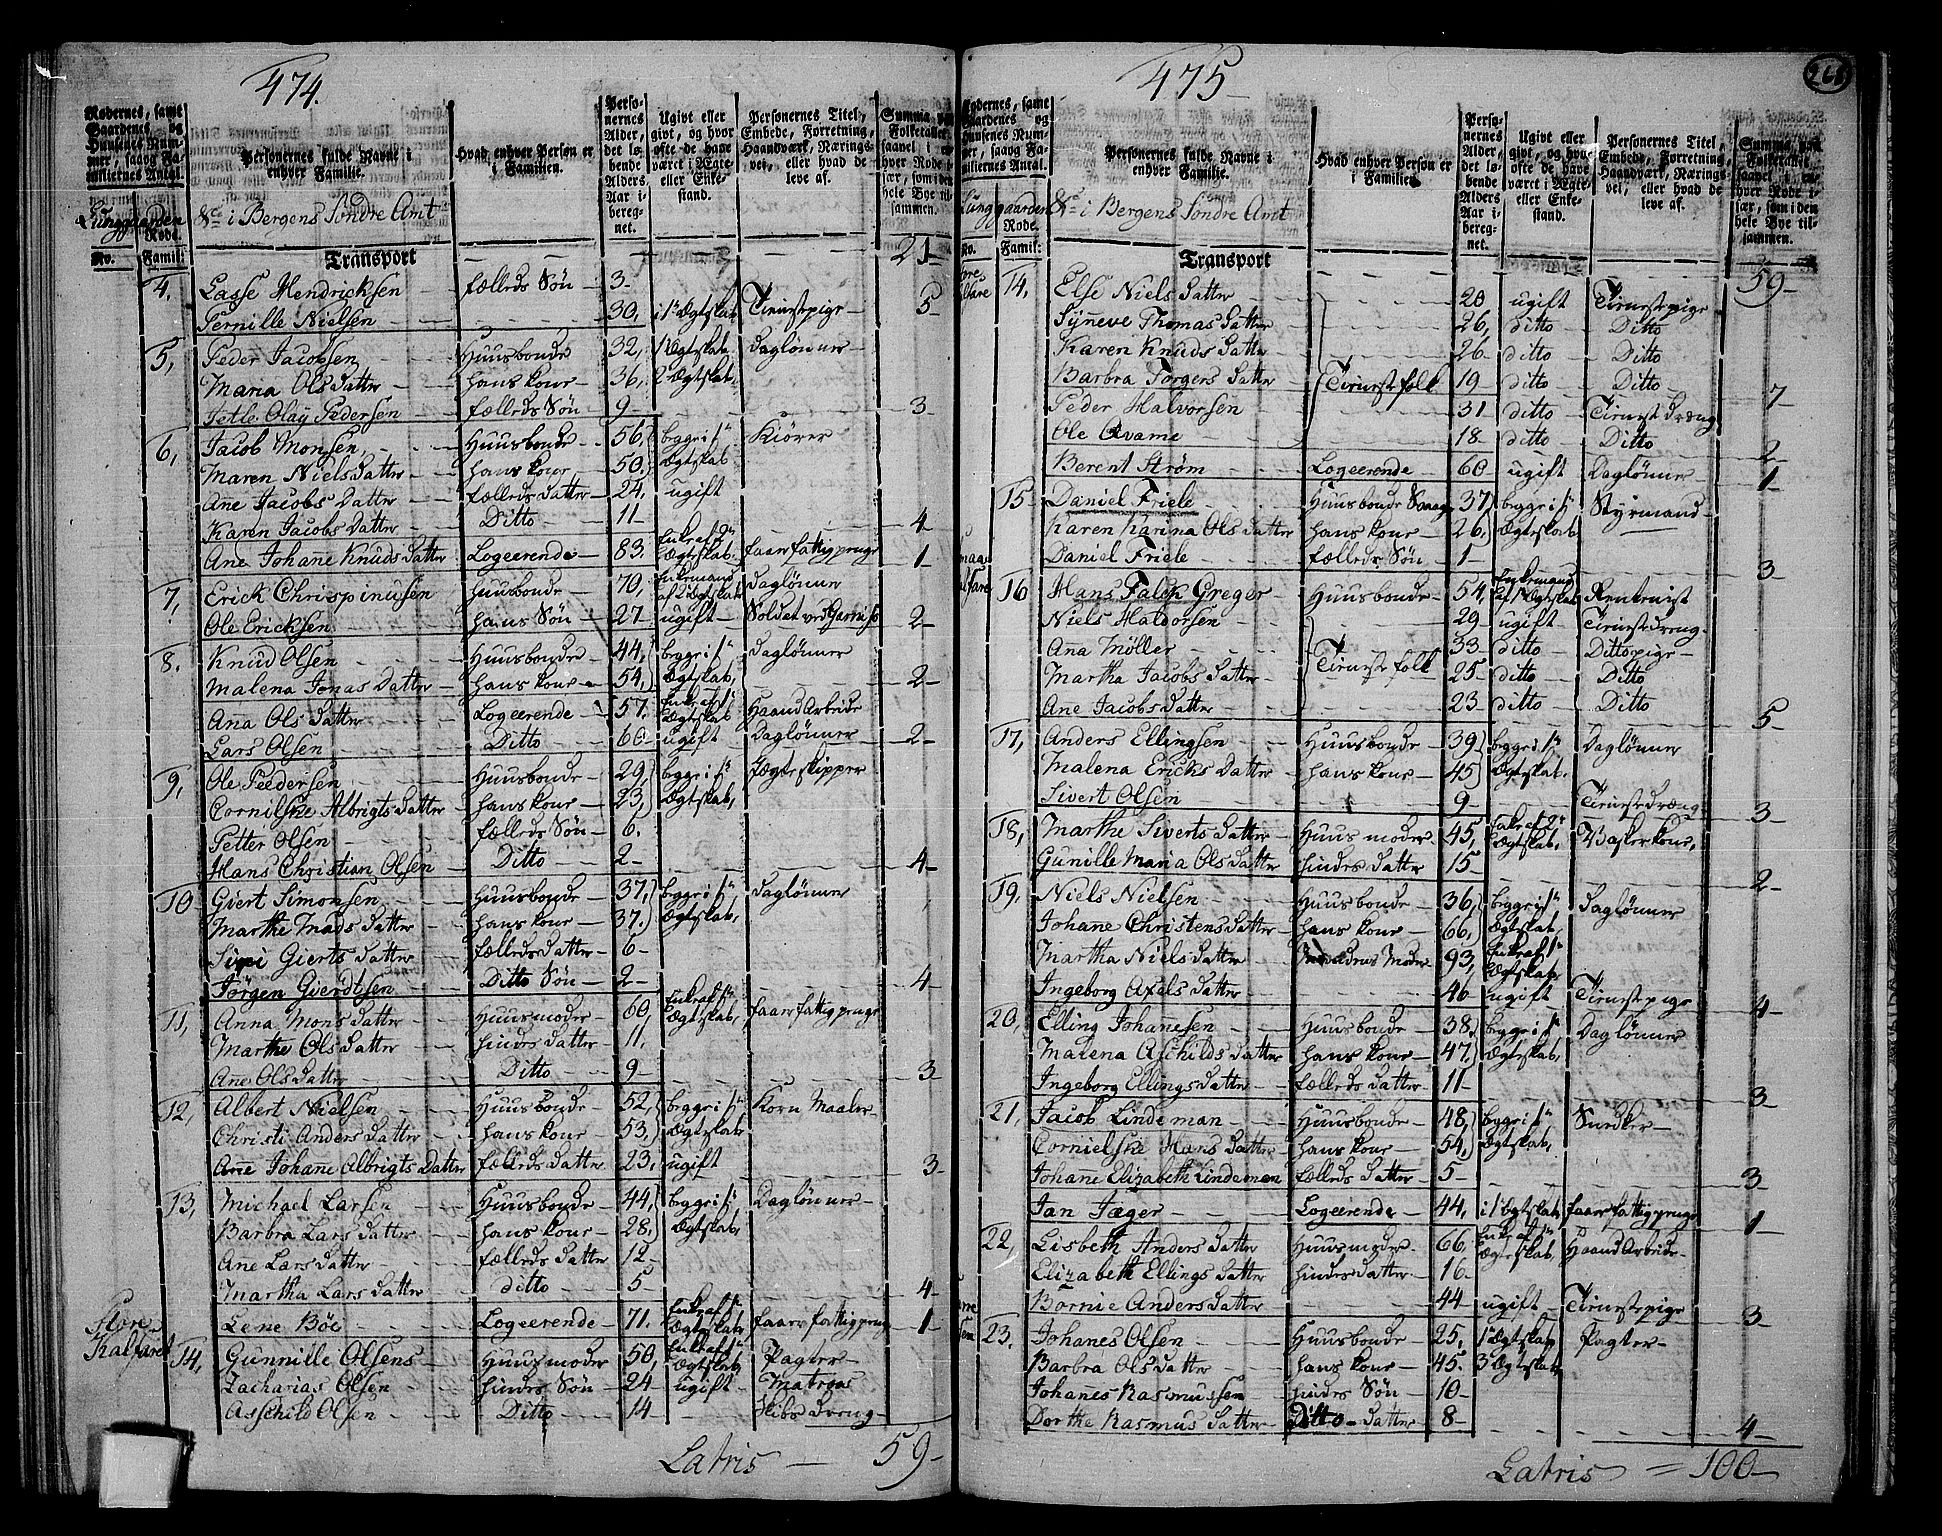 474.
Rodernes, samt Gaardenes og Huusenes Nummer, saavg Familiernes Antal.
Personernes fulde Navne i enhver Familie.
Hvad enhver Person er i Familien.
Personernes Alder, det løbende Alders Aar iberegnet.
Ugivt eller givt, og hvor ofte de have været i Ægte- eller Enkestand.
Personernes Titel, Embede, Forretning, Haandværk, Næringsvei, eller hvad de leve af.
Lunggaarden &c i Bergens Søndre Amt
Rode.
No. Famil: Transport 21
4, Lasse Hendricksen fælleds Søn 3
Pernille Nielsen 30, i 1te Ægtskab Tienestpige 5
5, Peder Jacobsen Huusbonde 32, 1 Ægtskab Daglønner
Maria Olsdatter hans kone 36, 2 Ægtskab,
Olay Pedersen fælleds Søn 9 3
6, Jacob Monsen Huusbonde 56, begge i 1te Kiører
Maren Nielsdatter hans kone 50, Ægtskab
Ane Jacobs Datter fælleds datter 24, ugift
Karen Jacobs Datter Ditto 11 4
Ane Johane Knuds Datter Logeerende 83. Enke af 2det Ægtskab faar fattigpenge 1
7, Erick Chrispinusen huusbonde 70, Enkemand af 2 Ægtskab Daglønner
Ole Ericksen hans Søn 27 ugift Soldat ved 2
8. Knud Olsen Huusbonde 44, begge i 1te Daglønner
Malena Jonas Datter hans kone 54, Ægtskab, 2
Ana Ols Datter Logeerende 57. Enke af 1te Ægtskab Haand Arbeide
Lars Olsen Ditto 60 ugift Daglønner 2
9, Ole Pedersen Huusbonde 29, begge i 1te Jægteskipper
Cornilske Albrigts Datter hans kone 23, Ægtskab,
Petter Olsen fælleds Søn 6.
Hans Christian Olsen Ditto 2 4
10 Giert Simonsen Huusbonde 37, begge i 1te Daglønner
Marthe Mads Datter hans kone 37. Ægtskab,
Gierts Datter fælleds datter 6
Jørgen Gierdtsen Ditto Søn 2 4
11, Anna Mons Datter Huusmoder 60, Enke af 1te Ægtskab, faar fattigpenge
Marthe Olsdatter hindes datter 11,
Ane Olsdatter Ditto 9 3
12, Albert Nielsen Huusbonde 52, begge i 1te Korn Maaler
Christi Anders Datter hans kone 53, Ægtskab
Ane Johane Albrigts Datter fælleds datter 23, ugift 3
13, Michael Larsen Huusbonde 44, begge i 1te Daglønner
Barbra Lars datter hans kone 28. Ægtskab,
Ane Lars datter fælleds datter 12
Martha Lars datter ditto 5 4
Lene Böe Logeerende 71. Enke af 1te Ægtskab faar fattigpeng 1
Store Kalfaret
14, Gunnille Olsens Huusmoder 50, Enke af 1te Ægtskab Pagter
Zacharias Olsen hindes Søn 24 ugift Matroos
Aschild Olsen Ditto 14 dreng
Latris 59
475
Personernes fulde Navne i enhver Familie.
Hvad enhver Person er i Familien.
Personernes Alder, det løbende Alders Aar iberegnet.
Ugivt eller givt, og hvor ofte de have været i Ægte- eller Enkestand.
Personernes Titel, Embede, Forretning, Haandværk, Næringsvei, eller hvad de leve af.
Summa paa Folketallet saavel i enhver Rode især, som i den hele Bye tilsammen.
Lunggaarden &c i Bergens Søndre Amt
Rode.
No. Famil: Transport 59
14, Else Niels Datter 20 ugift Tienestpige
Synneve Thomas Datter 26, ditto Ditto
Karen Knuds Datter 26 ditto Ditto
Barbra Torgers Datter Tienestfolk 19 ditto Ditto
Peder Halvorsen 31 ditto Tienestdræng 7
Ole Qvame 18 ditto Ditto 2
Berent Strøm Logeerende 60 ugift Daglønner 1
15 Daniel Friele Huusbonde 37 begge i 1te Styrmand
Karen Karina Ols datter hans kone 26, Ægtskab
Daniel Friele fælleds Søn 1 3
16 Hans Falck Greger Huusbonde 54, Enkemand af Ægtskab Rentenist
Niels Halvorsen 29 ugift Tienestdreng
Ana Møller 33 ditto Ditto pige
Martha Jacobs Datter Tienestfolk 25 ditto Ditto
Ane Jacobs datter 23 ditto Ditto 5
17, Anders Ellingsen Huusbonde 39 begge i 1te Daglønner
Malena Ericks Datter hans kone 45 Ægtskab.
Sivert Olsen 9 Tienestdræng 3
18, Marthe Siverts Datter Huus moder 45, Enke af 2det Ægtskab, Vaskerkone,
Gunille Maria Ols datter hindes datter 15 2
19, Niels Nielsen Huusbonde 36, begge i 1te Daglønner
Johane Christens datter hans kone 66, Ægtskab,
Martha Niels datter Moder 93, Enke af 1te Ægtskab
Ingeborg Axels Datter 46 ugift Tienestpige 4
20, Elling Johanesen Huusbonde 38. begge i 1te Daglønner
Malena Aschilds datter hans kone 47. Ægtskab,
Ingeborg Ellings datter fælleds datter 11 3
21, Jacob Lindeman Huusbonde 48, begge i 1te Snedker
Cornielske Hans Datter hans kone 54, Ægtskab,
Johane Elizabeth Lindeman fælleds Datter 5 3
Jan Jæger Logeerende 44, i 1te Ægtskab faar fattigpenge 1
22, Lisbeth Anders Datter Huusmoder 66, Enke af 1te Ægteskab, Haand Arbeide
Elizabeth Ellings Datter hindes datter 16
Bornie Anders Datter 44 ugift Tienestpige 3
23. Johanes Olsen Huusbonde 25. 1te Ægtskab Pagter
Barbra Ols datter hans kone 45. 3 Ægtskab
Johanes Rasmussen hindes Søn 10
Dorthe Rasmus Datter Ditto Datter 8 4
Latris 100